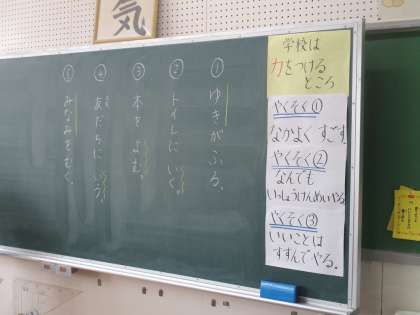 気
学校は
力をつける
ところ
やくそく①
なかよく すごす
やくそく②
なんでも
いっしょうけんめいやる
やくそく③
いいことは
すすんでやる。
① ゆきがふる。
② トイレに いく。
③ 本を よむ。
④ 友だちに いう。
⑤ みなみをむく。